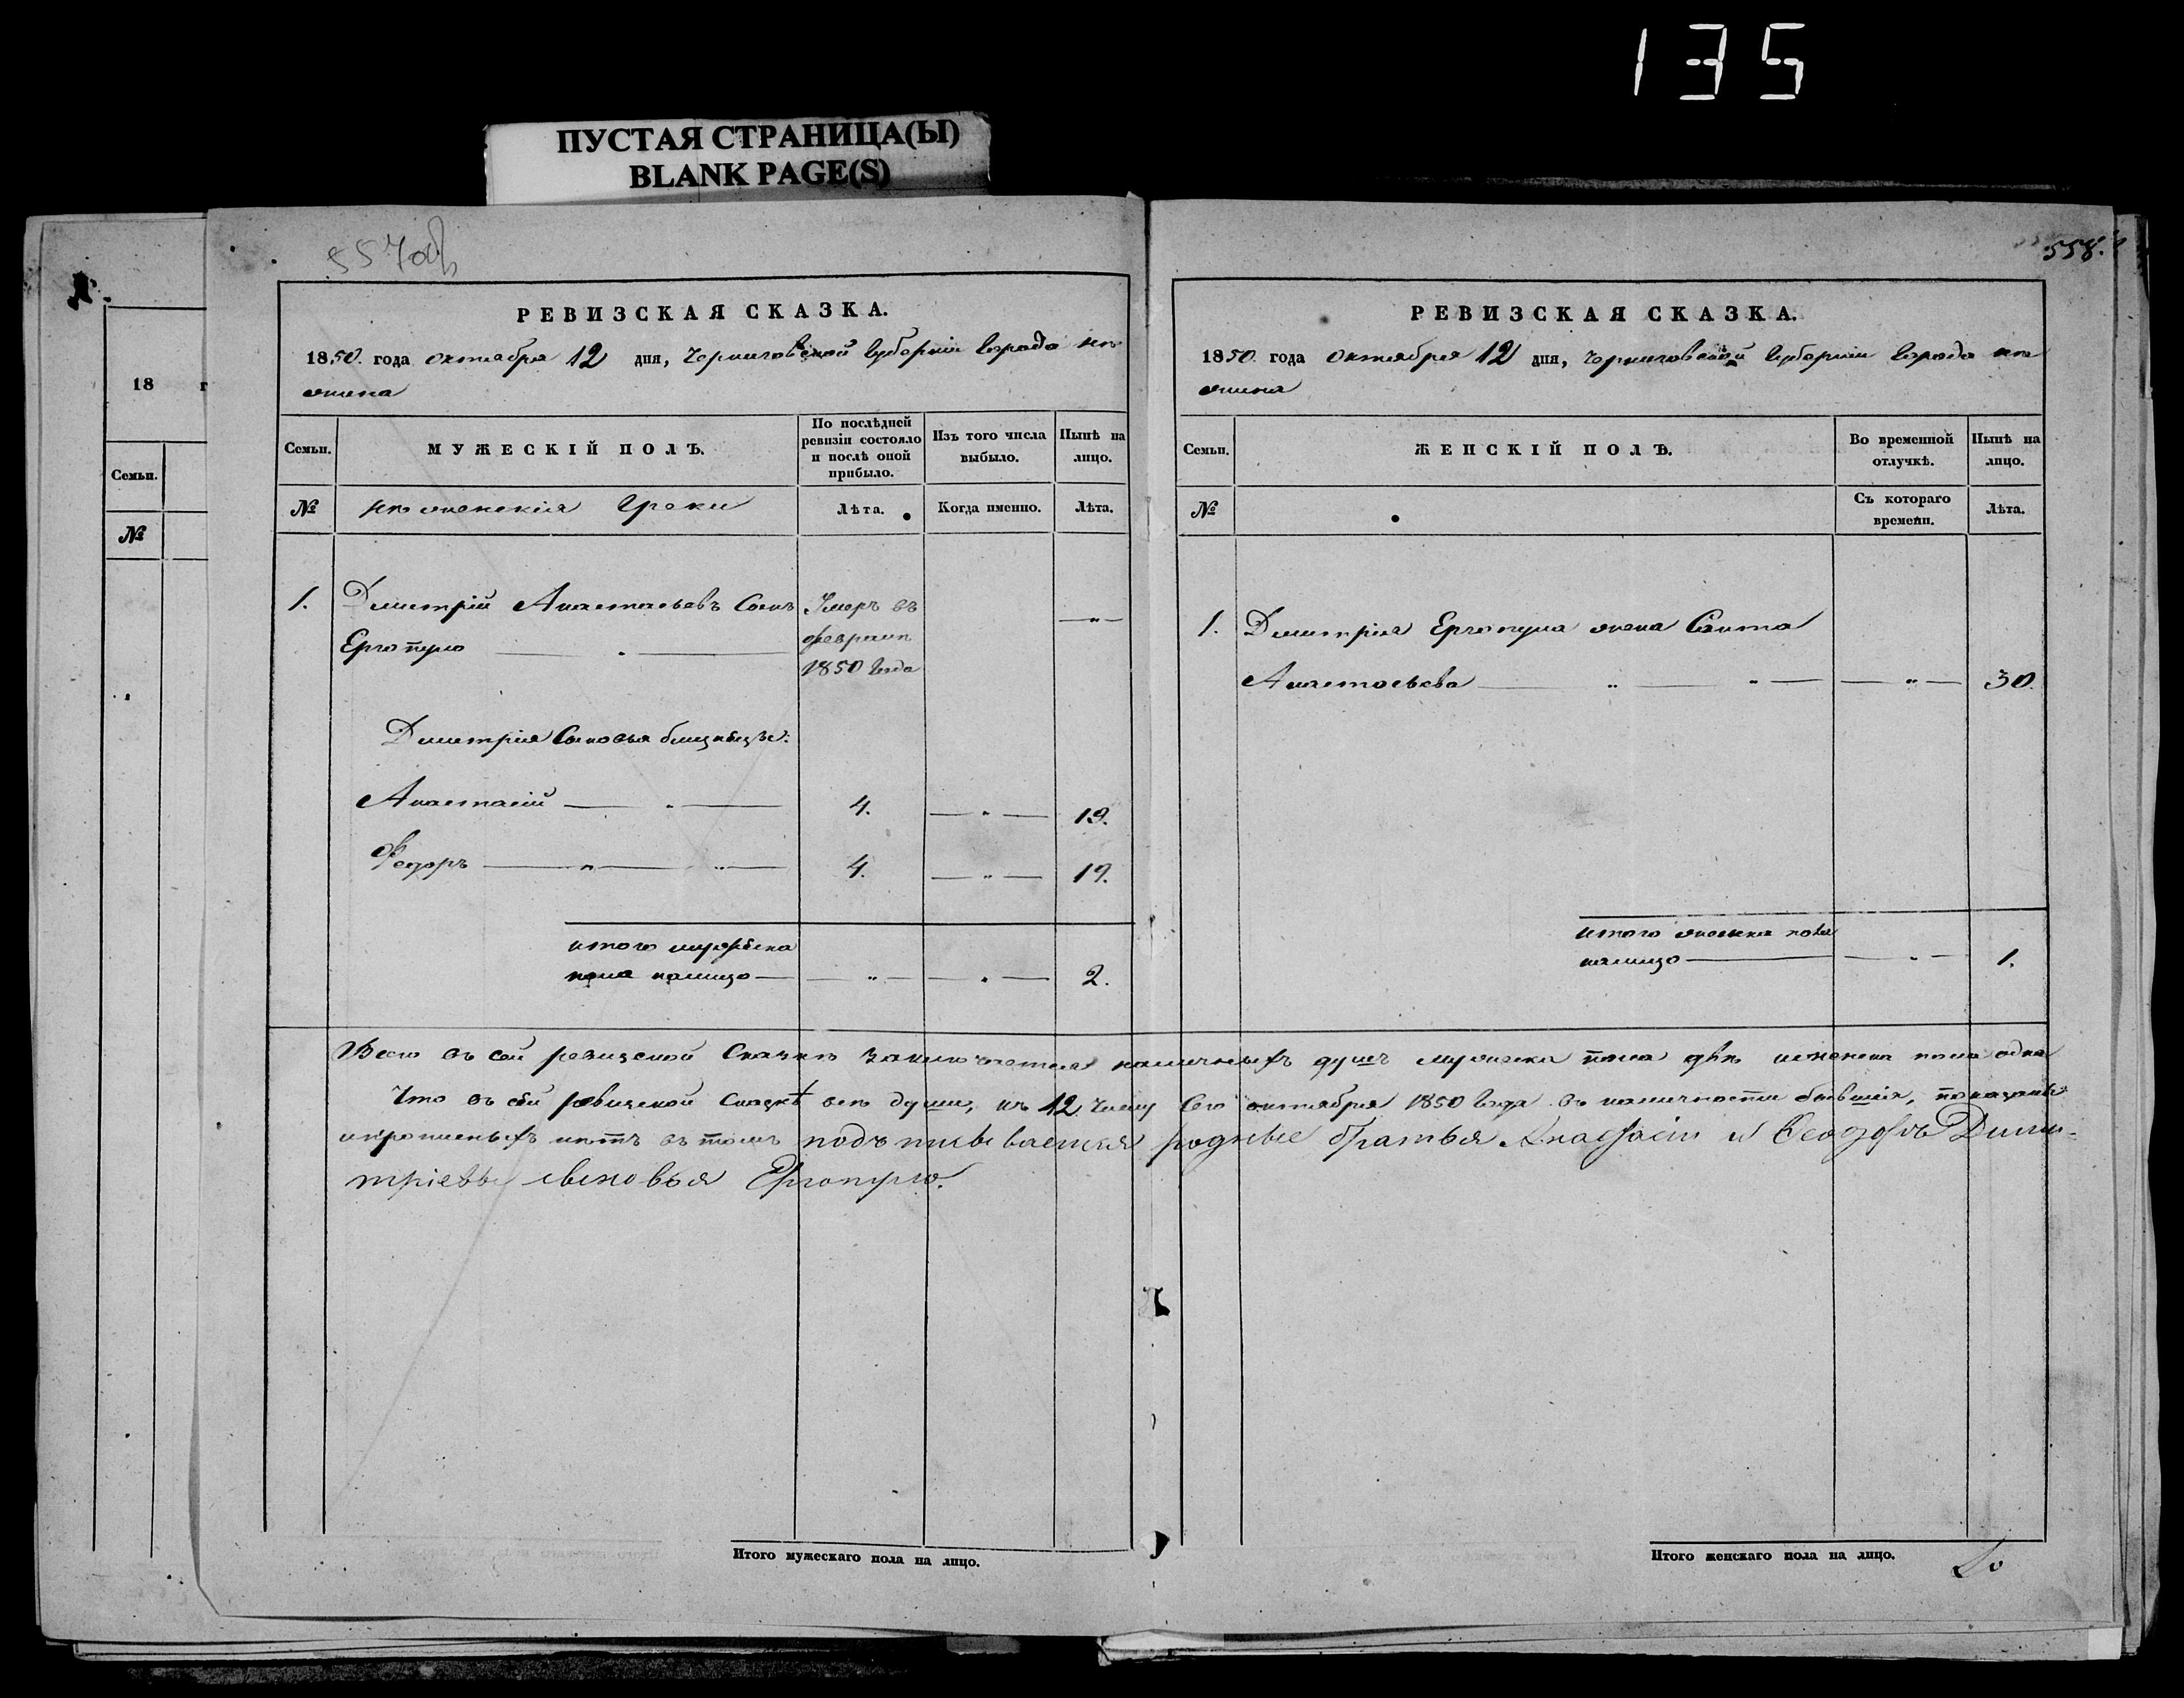 135
ПУСТАЯ СТРАНИЦА(Ы)
BLANK PAGE(S)
557об
558.
18 г
Семьи.
№
РЕВИЗСКАЯ СКАЗКА.
1850. года октября 12 дня, Черниговской губернии города нѣ
жина
Семьи.
МУЖЕСКІЙ ПОЛЪ.
По послѣдней ревизіи состояло и послѣ оной прибыло.
Изъ того числа выбыло.
Нынѣ на лицо.
№
нѣженскія Греки
Лѣта.
Когда именно.
Лѣта.
1. Дмитрій Анастасьевъ Сынъ Умеръ въ — " —
Ергопуло — " — февралѣ
1850 Года
Дмитрія Сыновья близнецы:
Анастасій — " — 4. — " — 19.
Федоръ — " — " — 4. — " — 19.
итого мужеска
пола налицо — — " — — " — 2.
РЕВИЗСКАЯ СКАЗКА.
1850 года Октября 12 дня, Черниговской губерніи города нѣ
жина
Семьи.
ЖЕНСКІЙ ПОЛЪ.
Во временной отлучкѣ.
Нынѣ на лицо.
№
Съ котораго времени.
Лѣта.
1. Дмитрія Ергопула жена
Анастасьева — " — " — — " — 30.
итого женска пола
налицо — — " — 1.
Всего въ сей ревизской Сказкѣ заключается наличныхъ душъ мужеска пола двѣ и женска пола одна
Что въ сей ревизской Сказкѣ всѣ души, къ 12 Числу Сего октября 1850 Года въ наличности бывшія, показаны
и пропиленыхъ нѣтъ въ томъ подъписываемся родные братья Анастасій и Ѳеодоръ Дими-
тріевы сыновья Ергопуло.
Итого мужескаго пола на лицо.
Итого женскаго пола на лицо.